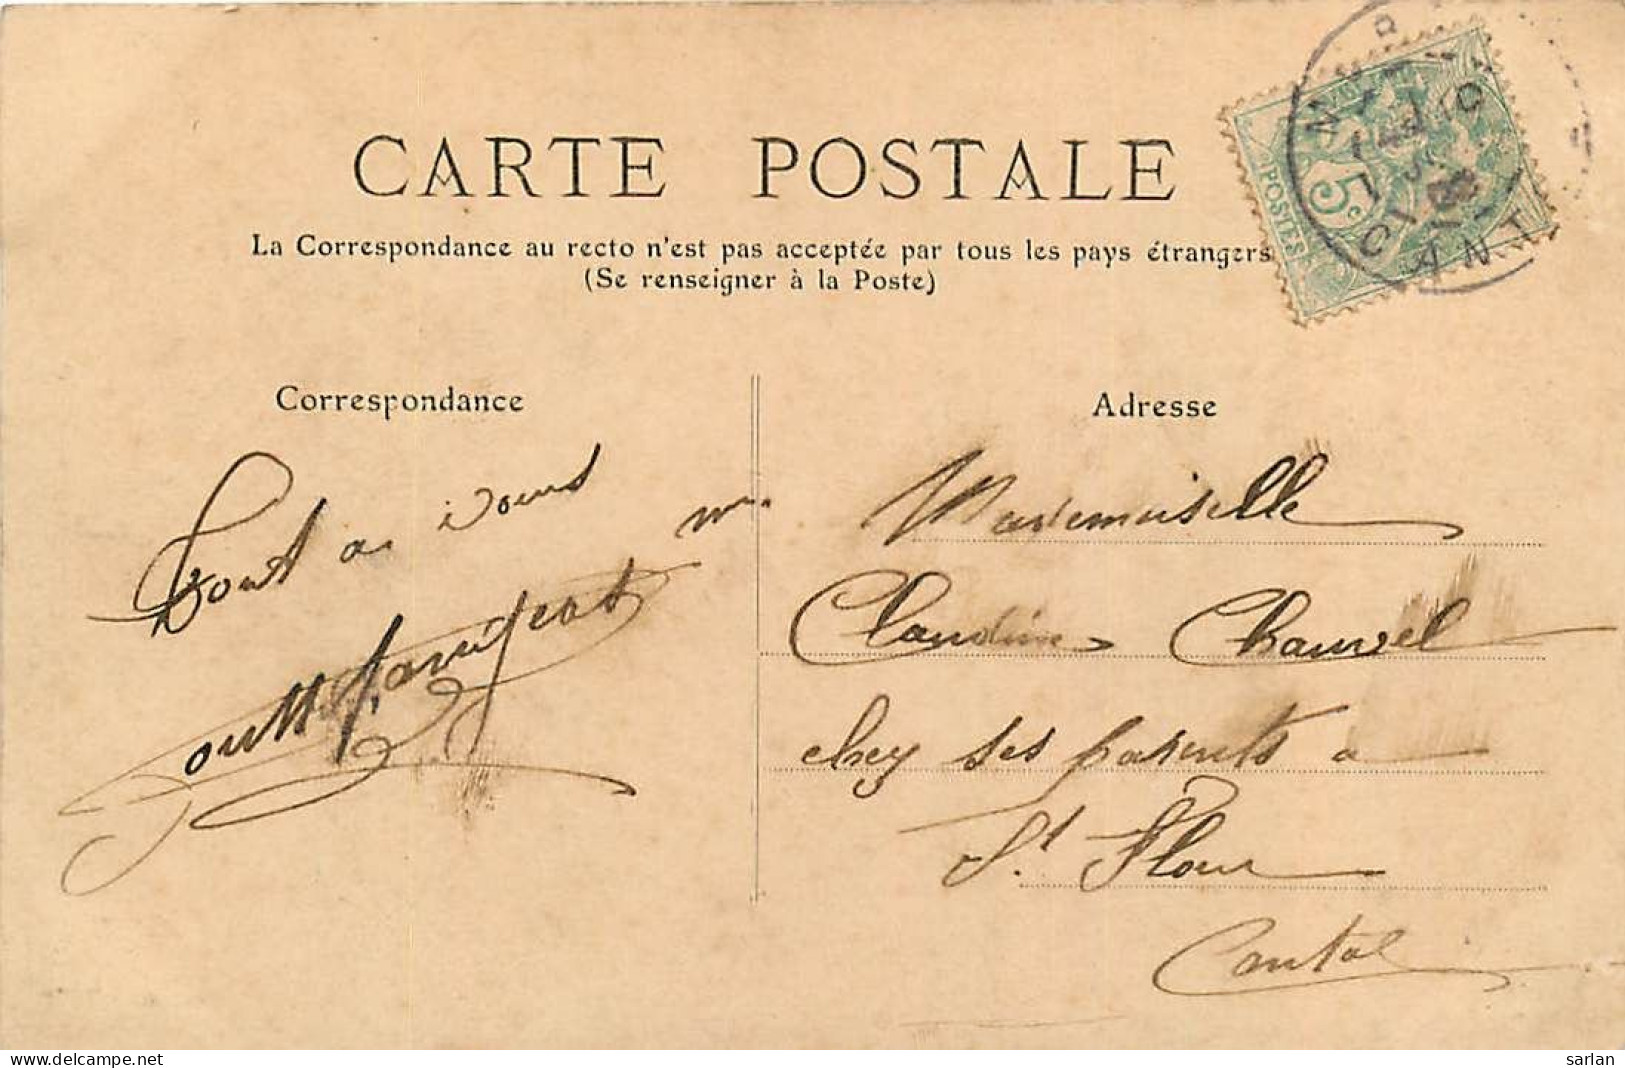 CARTE POSTALE
La Correspondance au recto n'est pas acceptée par tous les pays étrangers
(Se renseigner à la Poste)
POSTES 5c
CANT
Correspondance
Tout a vous
Adresse
Mademoiselle
Claudine Chauvel
chez ses parents a
St Flour
Cantal
www.delcampe.net
sarlan